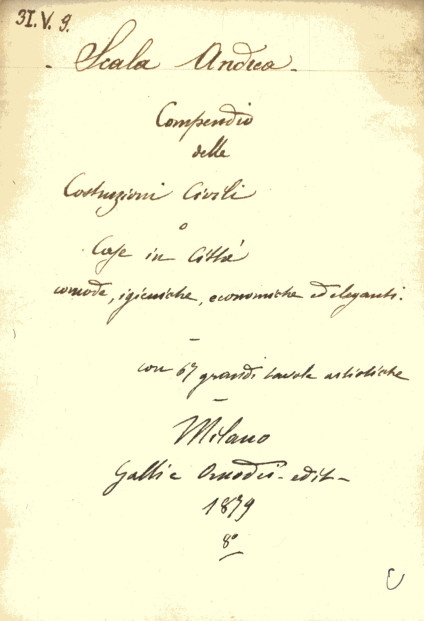 31. V. 9.
- Scala Andrea -
Compendio
delle
Costruzioni Civili
o
Case in Città
comode, igieniche, economiche ed eleganti.
-
con 67 grandi tavole artistiche
-
Milano
Galli e Omodei - edit -
1879
8°